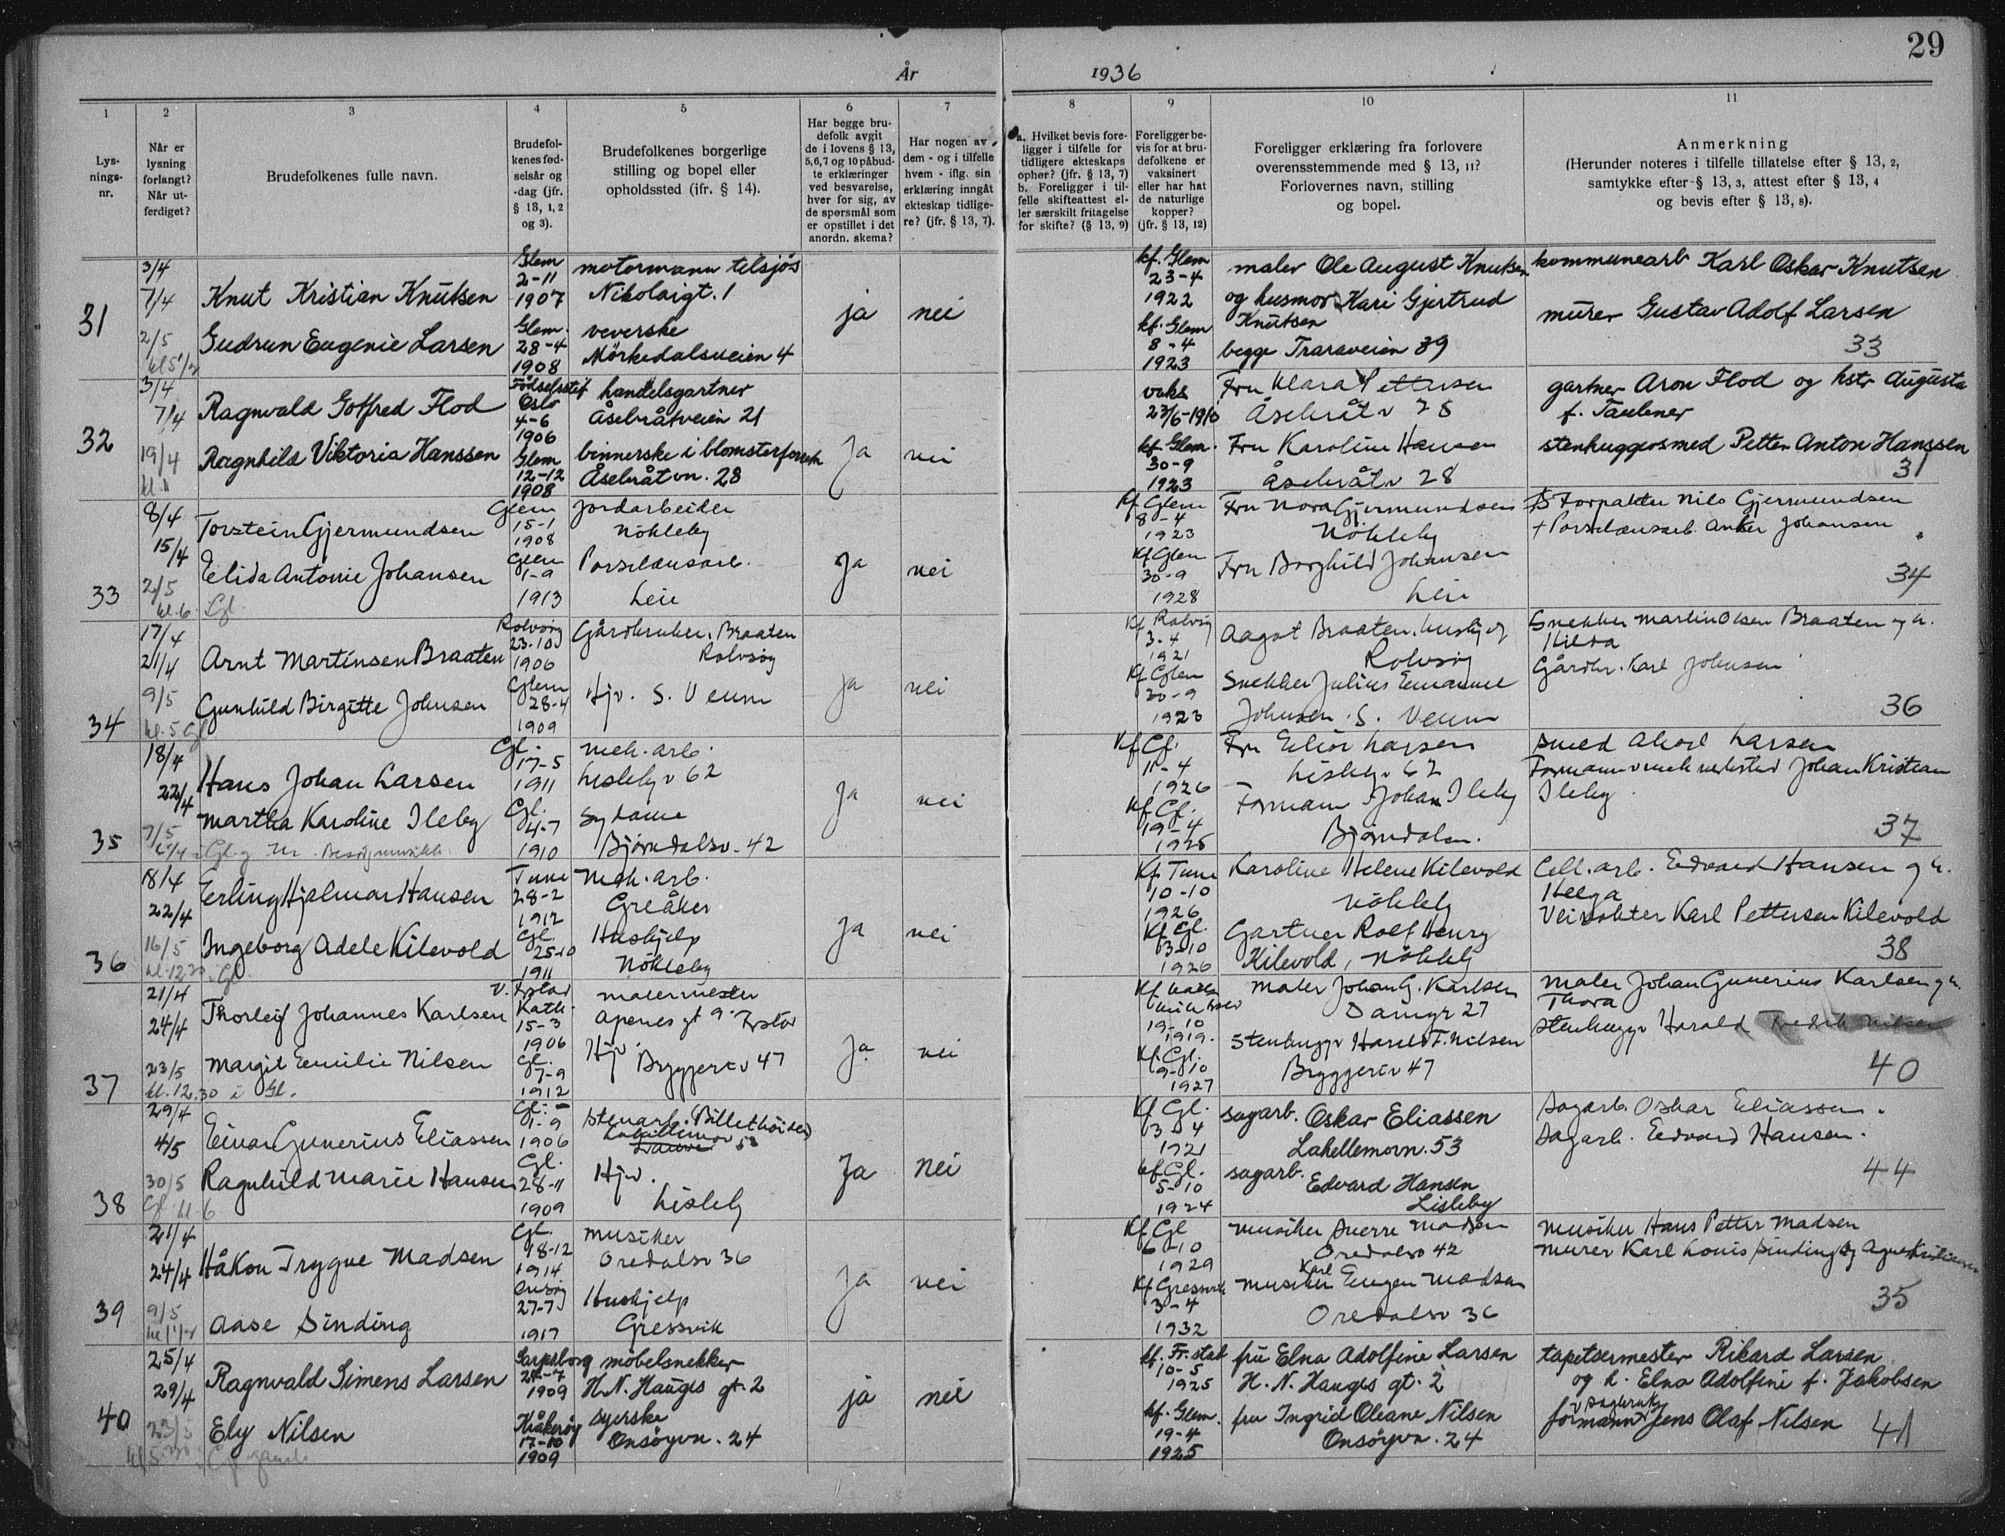 29
År 1936
1 2 3 4 5 6 7 8 9 10 11
Lys-
nings-
nr.
Når er
lysning
forlangt?
Når ut-
ferdiget?
Brudefolkenes fulle navn.
Brudefol-
kenes fød-
selsår og
-dag (jfr.
§ 13, 1, 2
og 3).
Brudefolkenes borgerlige
stilling og bopel eller
opholdssted (jfr. § 14).
Har begge bru-
defolk avgit
de i lovens § 13,
5,6,7 og 10 påbud-
te erklæringer
ved besvarelse,
hver for sig, av
de spørsmål som
er opstillet i det
anordn. skema?
Har nogen av
dem - og i tilfelle
hvem - iflg. sin
erklæring inngått
ekteskap tidlige-
re? (jfr. § 13, 7).
a. Hvilket bevis fore-
ligger i tilfelle for
tidligere ekteskaps
ophør? (jfr. § 13, 7)
b. Foreligger i til-
felle skifteattest el-
ler særskilt fritagelse
for skifte? (§ 13, 9)
Foreligger be-
vis for at bru-
defolkene er
vaksinert
eller har hat
de naturlige
kopper?
(jfr. § 13, 12)
Foreligger erklæring fra forlovere
overensstemmende med § 13, 11?
Forlovernes navn, stilling
og bopel.
Anmerkning
(Herunder noteres i tilfelle tillatelse efter § 13, 2,
samtykke efter § 13, 3, attest efter § 13, 4
og bevis efter § 13, 8).
31
3/4
7/4
2/5
kl 5 1/2
Knut Kristian Knutsen
Gudrun Eugenie Larsen
Glem
2-11
1907
Glem.
28-4
1908
motormann tilsjøs
Nikolaigt. 1
veverske
Mørkedalsveien 4
ja
nei
kf. Glem
23-4
1922
kf. Glem
8-4
1923
maler Ole August Knutsen
og husmor Kari Gjertrud
Knutsen
begge Traraveien 39
kommunearb Karl Oskar Knutsen
murer Gustav Adolf Larsen
33
32
3/4
7/4
19/4
Ragnvald Gotfred Flod
Ragnhild Viktoria Hanssen
Oslo
4-6
1906
Glem
12-12
1908
handelsgartner
Åsebråtveien 21
binnerske i blomsterforretn
Åsebråtvn. 28
Ja
nei
vaks
23/6-1910
kf. Glem.
30-9
1923
Fru Klara Pettersen
Åsebråtv 28
Fru Karoline Hansen
Åsebråtv 28
gartner Aron Flod og hstr Augusta
f. Taubner
stenhuggersmed Petter Anton Hanssen
31
33
8/4
15/4
2/5
kl. 6. Gl.
Torstein Gjermundsen
Elida Antonie Johansen
Glem
15-1
1908
Glem
1-9
1913
Jordarbeider
Nökleby
Porselensarb.
Leie
Ja
nei
Kf Glem
8-4
1923
Kf Glem
30-9
1928
Fru Nora Gjermundsen
Nökleby
Fru Borghild Johansen
Leie
Forpakter Nils Gjermundsen
+ Porselensarb. Anker Johansen
34
34
17/4
21/4
9/5
kl. 5 Gl
Arnt Martinsen Braaten
Gunhild Birgitte Johnsen
Rolvsøy
23-10
1906
Glem
28-4
1909
Gårdbruker. Braaten
Rolvsøy
Hjv. S. Veum
Ja
nei
Kf Rolvsøy
3-4
1921
Kf Glem
30-9
1923
Aagot Braaten,
Rolvsøy
Snekker Julius Emanuel
Johnsen. S. Veum
Snekker Martin Olsen Braaten og h.
Hilda
Gårdbr. Karl Johnsen
36
35
18/4
22/4
7/5
Hans Johan Larsen
Martha Karoline Ileby
Gl.
17-5
1911
Gl.
4-7
1910
mek. arb.
Lislebyv 62
Sydame
Bjørndalsv. 42
Ja
nei
Kf Gl.
11-4
1926
Kf Gl.
19-4
1925
Fru Larsen
Lislebyv 62
Formann Johan Ileby
Bjørndalen.
Smed Aksel Larsen
Formann v mek verksted Johan Kristian
Ileby.
37
36
18/4
22/4
16/5
kl. 12.30. Gl.
Erling Hjalmar Hansen
Ingeborg Adele Kilevold
Tune
28-2
1912
Gl.
25-10
1911
Mek. arb.
Greåker
Hushjelp
Nökleby
Ja
nei
Kf Tune
10-10
1926
Kf Gl.
3-10
1926
Karoline Helene Kilevold
Nökleby
Gartner Rolf Henry
Kilevold, Nökleby
Cell. arb. Edvard Hansen og h.
Helga
Veivokter Karl Pettersen Kilevold
38
37
21/4
24/4
23/5
kl. 12.30 i Gl.
Thorleif Johannes Karlsen
Margit Emilie Nilsen
V. Frstad
Kath.
15-3
1906
Gl.
7-9
1912
malermester
Apenesgt 9. Frstad
Hjv.
Bryggeriv 47
Ja
nei
19-10
1919.
Kf. Gl.
9-10
1927
Maler Johan G. Karlsen
Damgt 27
Stenhugger Harald F. Nilsen
Bryggeriv 47
Maler Johan Gunerius Karlsen og h.
Thora
Stenhugger Harald Fredrik Nilsen
40
38
29/4
4/5
30/5
Gl. kl. 6
Einar Gunerius Eliassen
Ragnhild Marie Hansen
Gl.
1-9
1906
Gl.
28-11
1909
Lakellemov 53
Hjv.
Lisleby
Ja
nei
Kf Gl.
3-4
1921
kf Gl.
5-10
1924
sagarb. Oskar Eliassen
Lakellemovn. 53
sagarb.
Edvard Hansen
Lisleby
Sagarb. Oskar Eliassen.
Sagarb. Edvard Hansen.
44
39
21/4
24/4
9/5
Håkon Trygve Madsen
Aase Sinding
Gl.
18-12
1914
Onsøy
27-7
1917
musiker
Oredalsv 36
Hushjelp
Gressvik
Ja
nei
Kf Gl
6-10
1929
Kf Gressvik
3-4
1932
Musiker Sverre Madsen
Oredalsv 42
Musiker Karl Eugen Madsen
Oredalsv 36
Musiker Hans Petter Madsen
Murer Karl Louis Sinding og Agnes Kristiansen
35
40
25/4
29/4
23/5
Ragnvald Simens Larsen
Ely Nilsen
Sarpsborg
24-7
1909
Kråkerøy
17-10
1909
møbelsnekker
H. N. Hauges gt. 2
syerske
Onsøyvn. 24
ja
nei
kf. Fr.stad
10-5
1925
kf. Glem.
19-4
1925
fru Elna Adolfine Larsen
H. N. Hauges gt. 2
fru Ingrid Oleane Nilsen
Onsøyvn. 24
tapetsermester Rikard Larsen
og h. Elna Adolfine f. Jakobsen
formann v sagbruk Jens Olaf Nilsen
41